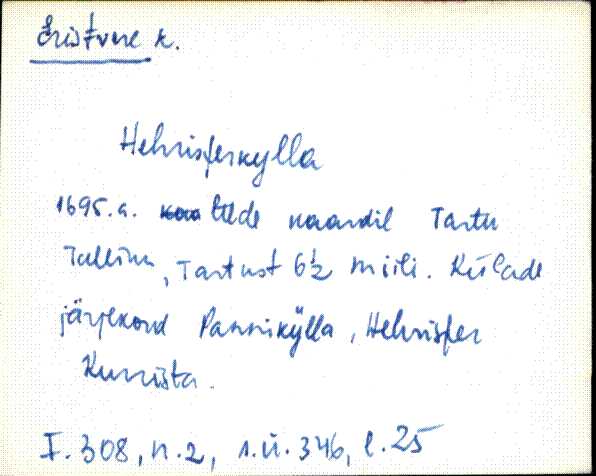 Eristvere k.
Hehrisferkylla
1695.a. teede kaardil Tartu
Tallinn, Tartust 6½ miili. Külade
järjekord Pannikÿlla, Hehrisfer
Kurrista.
F. 308, n. 2, s.ü. 346, l. 25